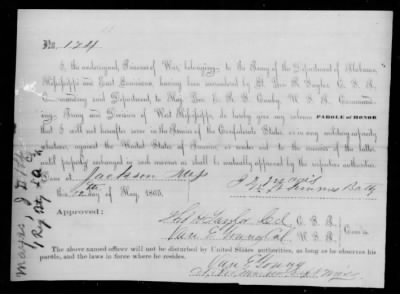 No. 124
I, the undersigned, Prisoner of War, belonging to the Army of the Department of Alabama,
Mississippi and East Louisiana, having been surrendered by Lt. Gen. R. Taylor, C. S. A.,
Commanding said Department, to Maj. Gen. E. R. S. Canby, U. S. A., Commanding
Army and Division of West Mississippi, do hereby give my solemn PAROLE of HONOR
that I will not hereafter serve in the Armies of the Confederate States, or in any military capacity
whatever, against the United States of America, or render aid to the enemies of the latter,
until properly exchanged in such manner as shall be mutually approved by the respective authorities.
Done at Jackson Miss
this 12th day of May, 1865.
J D Mayes
Approved:
C. S. A.
Van E Young Col U. S. A. Com'rs.
The above named officer will not be disturbed by United States authorities, as long as he observes his
parole, and the laws in force where he resides.
Van E Young
Mayes, J D
1 Reg Arty La